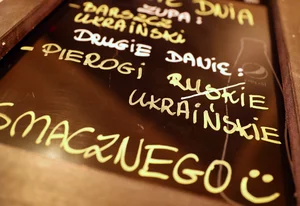 DNIA
ZUPA:
- BARSZCZ
UKRAIŃSKI
DRUGIE DANIE:
- PIEROGI RUSKIE
UKRAIŃSKIE
SMACZNEGO